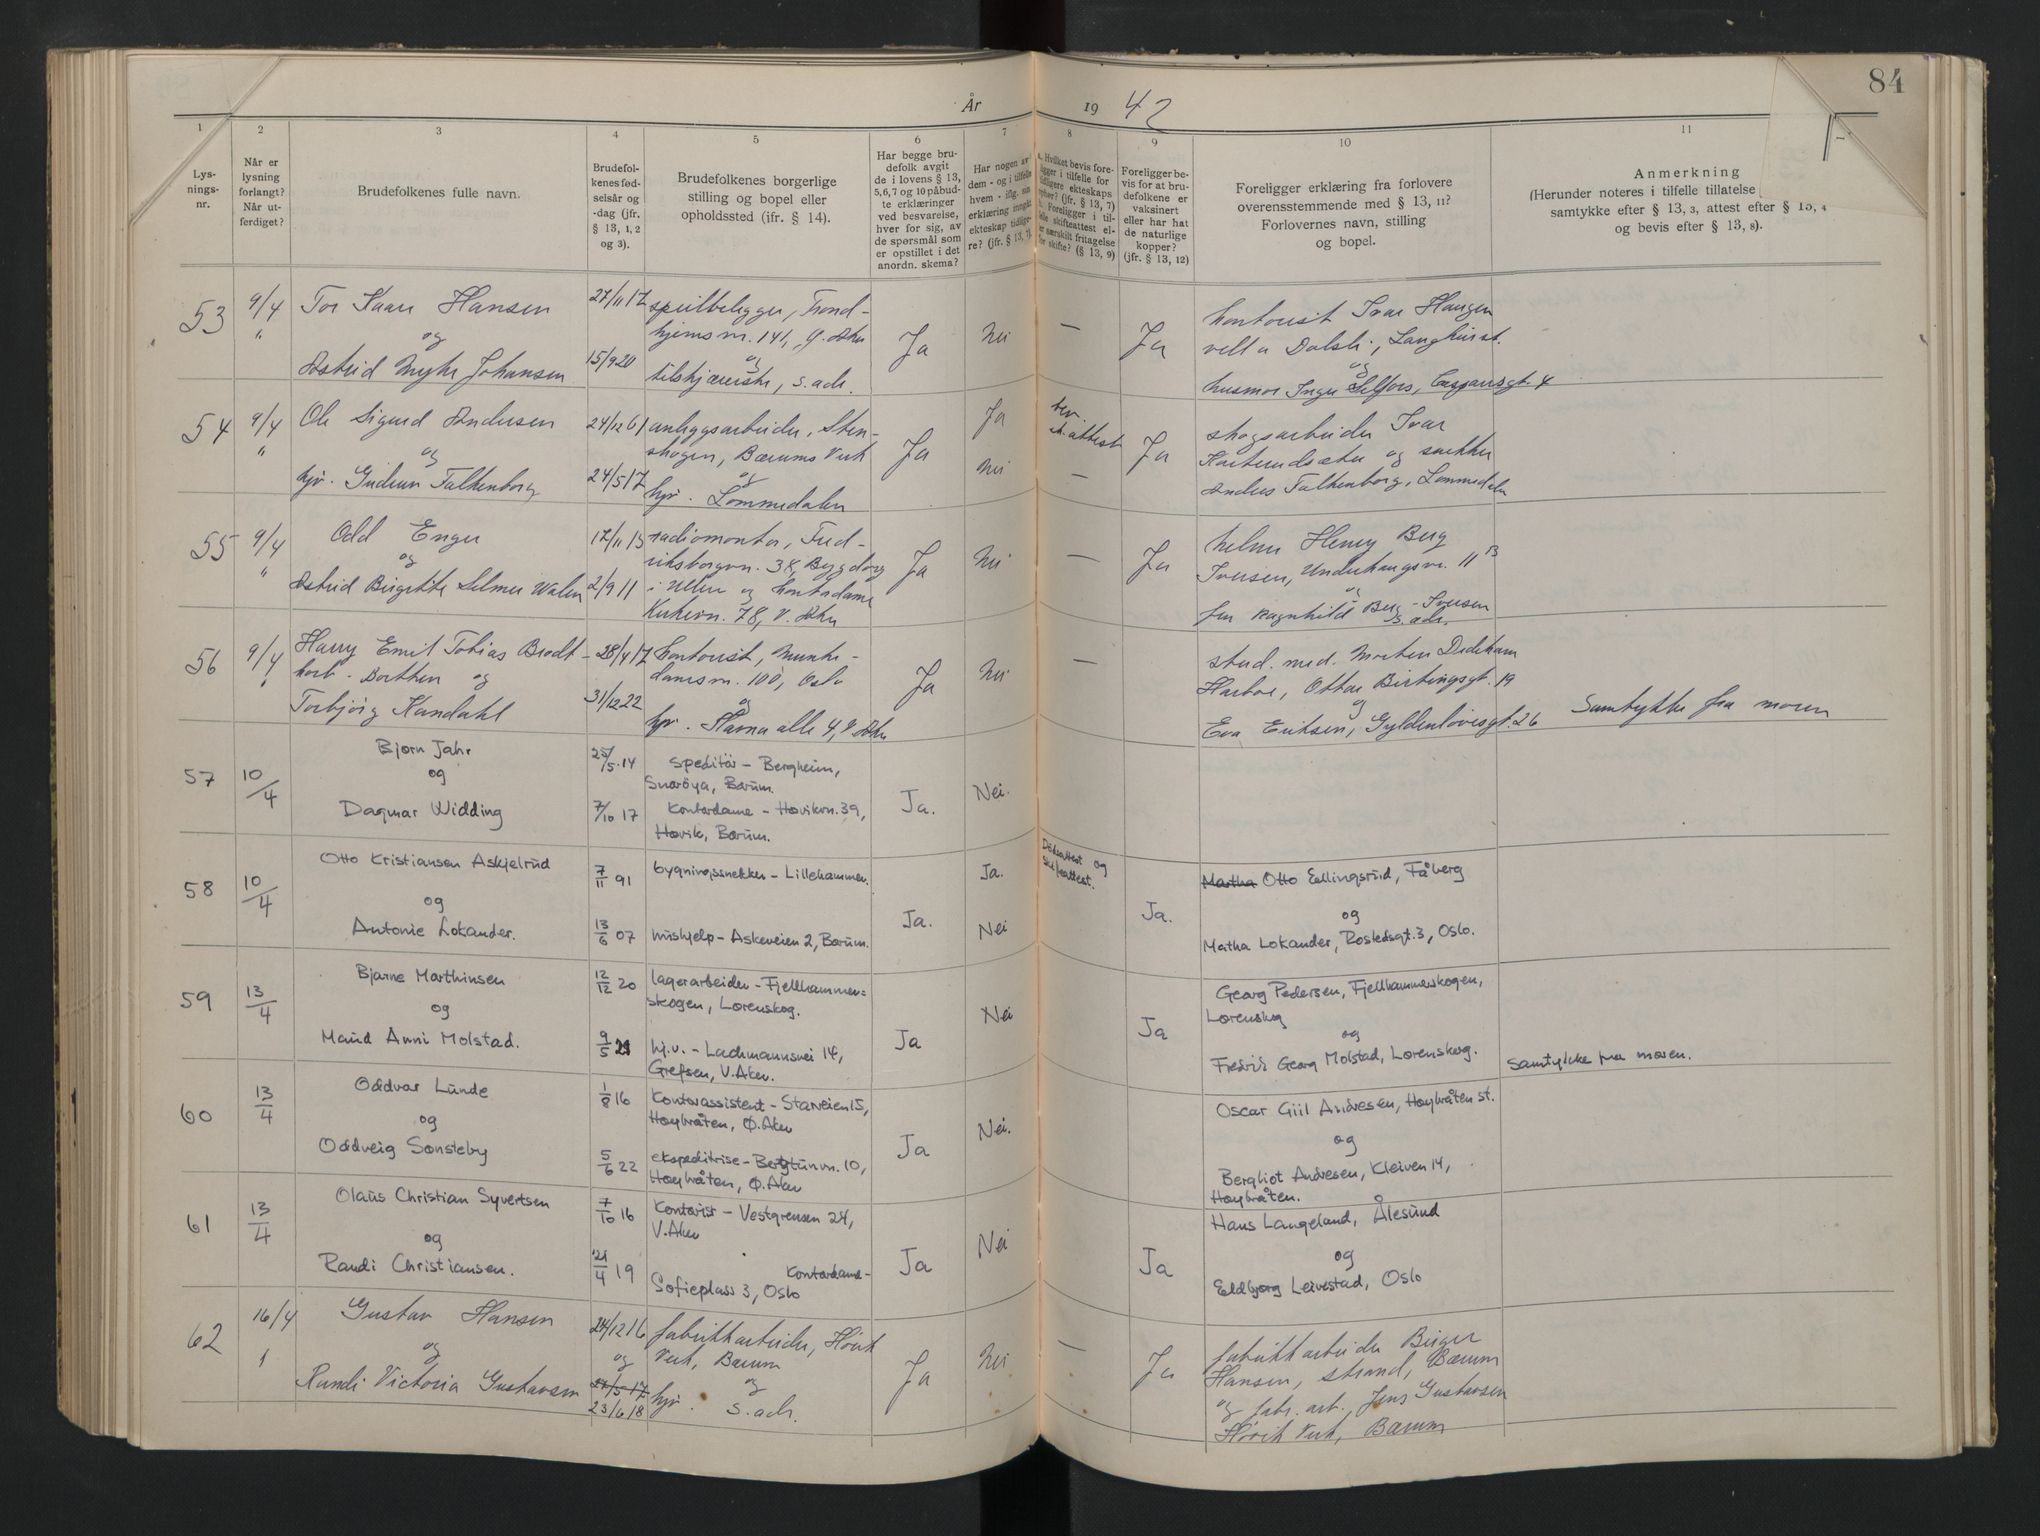 84
År 1942
1 2 3 4 5 6 7 8 9 10 11
Lys-
nings-
nr.
Når er
lysning
forlangt?
Når ut-
ferdiget?
Brudefolkenes fulle navn.
Brudefol-
kenes fød-
selsår og
-dag (jfr.
§ 13, 1, 2
og 3).
Brudefolkenes borgerlige
stilling og bopel eller
opholdssted (ifr. § 14).
Har begge bru-
defolk avgit
de i lovens § 13,
5,6,7 og 10 påbud-
te erklæringer
ved besvarelse,
hver for sig, av
de spørsmål som
er opstillet i det
anordn. skema?
Har nogen av
dem - og i tilfelle
hvem - iflg. sin
erklæring inngått
ekteskap tidlige-
re? (jfr. § 13, 7).
a. Hvilket bevis fore-
ligger i tilfelle for
tidligere ekteskaps
ophør? (jfr. § 13, 7)
b. Foreligger i til-
felle skifteattest el-
ler særskilt fritagelse
for skifte? (§ 13, 9)
Foreligger be-
vis for at bru-
defolkene er
vaksinert
eller har hat
de naturlige
kopper?
(jfr. § 13, 12)
Foreligger erklæring fra forlovere
overensstemmende med § 13, 11?
Forlovernes navn, stilling
og bopel.
Anmerkning
(Herunder noteres i tilfelle tillatelse
samtykke efter § 13, 3, attest efter § 13, 4
og bevis efter § 13, 8).
53 9/4 Tor Kaare Hansen 27/11 17 speilbelegger, Trond-
" og hjemsvn. 141, Ø. Aker Ja Nei — Ja kontorist Ivar Haugen
Astrid Myhr Johansen 15/9 20 og
tilskjærerske, s. adr.
og
husmor Inger Selfors, Casparisgt. 4
54 9/4 Ole Sigurd Andersen 24/12 61 anleggsarbeider, Sten-
" og skogen, Bærums Verk Ja Ja bev. Ja skogsarbeider Ivar
sk. attest
og snekker
hjv. Gudrun Falkenborg 24/5 17 og
hjv. Lommedalen Nei — Anders Falkenborg, Lommedalen
55 9/4 Odd Enger 17/11 13 radiomontør, Fred-
" og riksborgvn. 38, Bygdøy Ja Nei — Ja Henry Berg
Iversen, Underhaugsvn. 11 B
Astrid Birgitte Selmer Walen 2/9 11 i Ullern og kontordame
Kirkevn. 78, V. Aker
og
fru Ragnhild Berg-Iversen
s. adr.
56 9/4 Harry Emil Tobias Brodt- 28/4 17 kontorist, Munke-
korb - Botten og damsvn. 100, Oslo Ja Nei — stud. med. Morten Dedekam
Harboe, Ottar Birtingsgt. 19
Torbjörg Kandahl 31/12 22 og
hjv. Harna alle 4, V. Aker
og
Eva Eriksen, Gyldenløvesgt. 26 Samtykke fra moren
57 10/4 Bjørn Jahr 25/5 14 Speditør - Bergheim,
og Snarøya, Bærum. Ja. Nei.
Dagmar Widding 7/10 17 Kontordame - Høvikvn. 39,
Høvik, Bærum.
58 10/4 Otto Kristiansen Askjelrud 7/11 91 bygningssnekker - Lillehammer. Ja. Dödsattest og
skifteattest.
Martha Otto Eellingsrud, Fåberg
og Ja. Ja. og
Antonie Lokander. 13/6 07 hushjelp - Askeveien 2, Bærum. Nei Matha Lokander, Rostedsgt. 3, Oslo.
59 13/4 Bjarne Marthinsen 12/12 20 lagerarbeider - Fjellhammer=
skogen, Lørenskog.
og Ja Nei Ja Georg Pedersen, Fjellhammerskogen,
Lørenskog
og
Maud Anni Molstad. 9/5 21 hj.v. - Lachmannsvei 14,
Grefsen, V. Aker.
Fredrik Georg Molstad, Lørenskog. Samtykke fra moren.
60 13/4 Oddvar Lunde 1/8 16 Kontorassistent - Starveien 15,
Høybråten, Ø. Aker
og Ja Nei. Oscar Giil Andresen, Høybråten st.
og
Oddveig Sønsteby 5/6 22 ekspeditrise - Bergtunvn. 10,
Høybråten, Ø. Aker
Bergliot Andresen, Kleiven 14,
Høybråten.
61 13/4 Olaus Christian Syvertsen 7/10 16 Kontorist - Vestgrensen 24,
V. Aker
og Ja Nei Ja Hans Langeland, Ålesund
og
Randi Christiansen. 21/4 19 Kontordame -
Sofieplass 3, Oslo
Eldbjørg Leivestad, Oslo
62 16/4 Gustav Hansen 24/12 16 fabrikkarbeider, Høvik
og og Verk, Bærum Ja Nei — Ja fabrikkarbeider Birger
Hansen, Strand, Bærum
Randi Victoria Gustavsen 27/5 17 og
23/6 18 hjv. s. adr.
og fabr. arb. Jens Gustavsen
Høvik Verk, Bærum